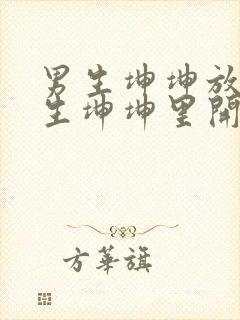 男生坤坤放
生坤坤里開
方華旗